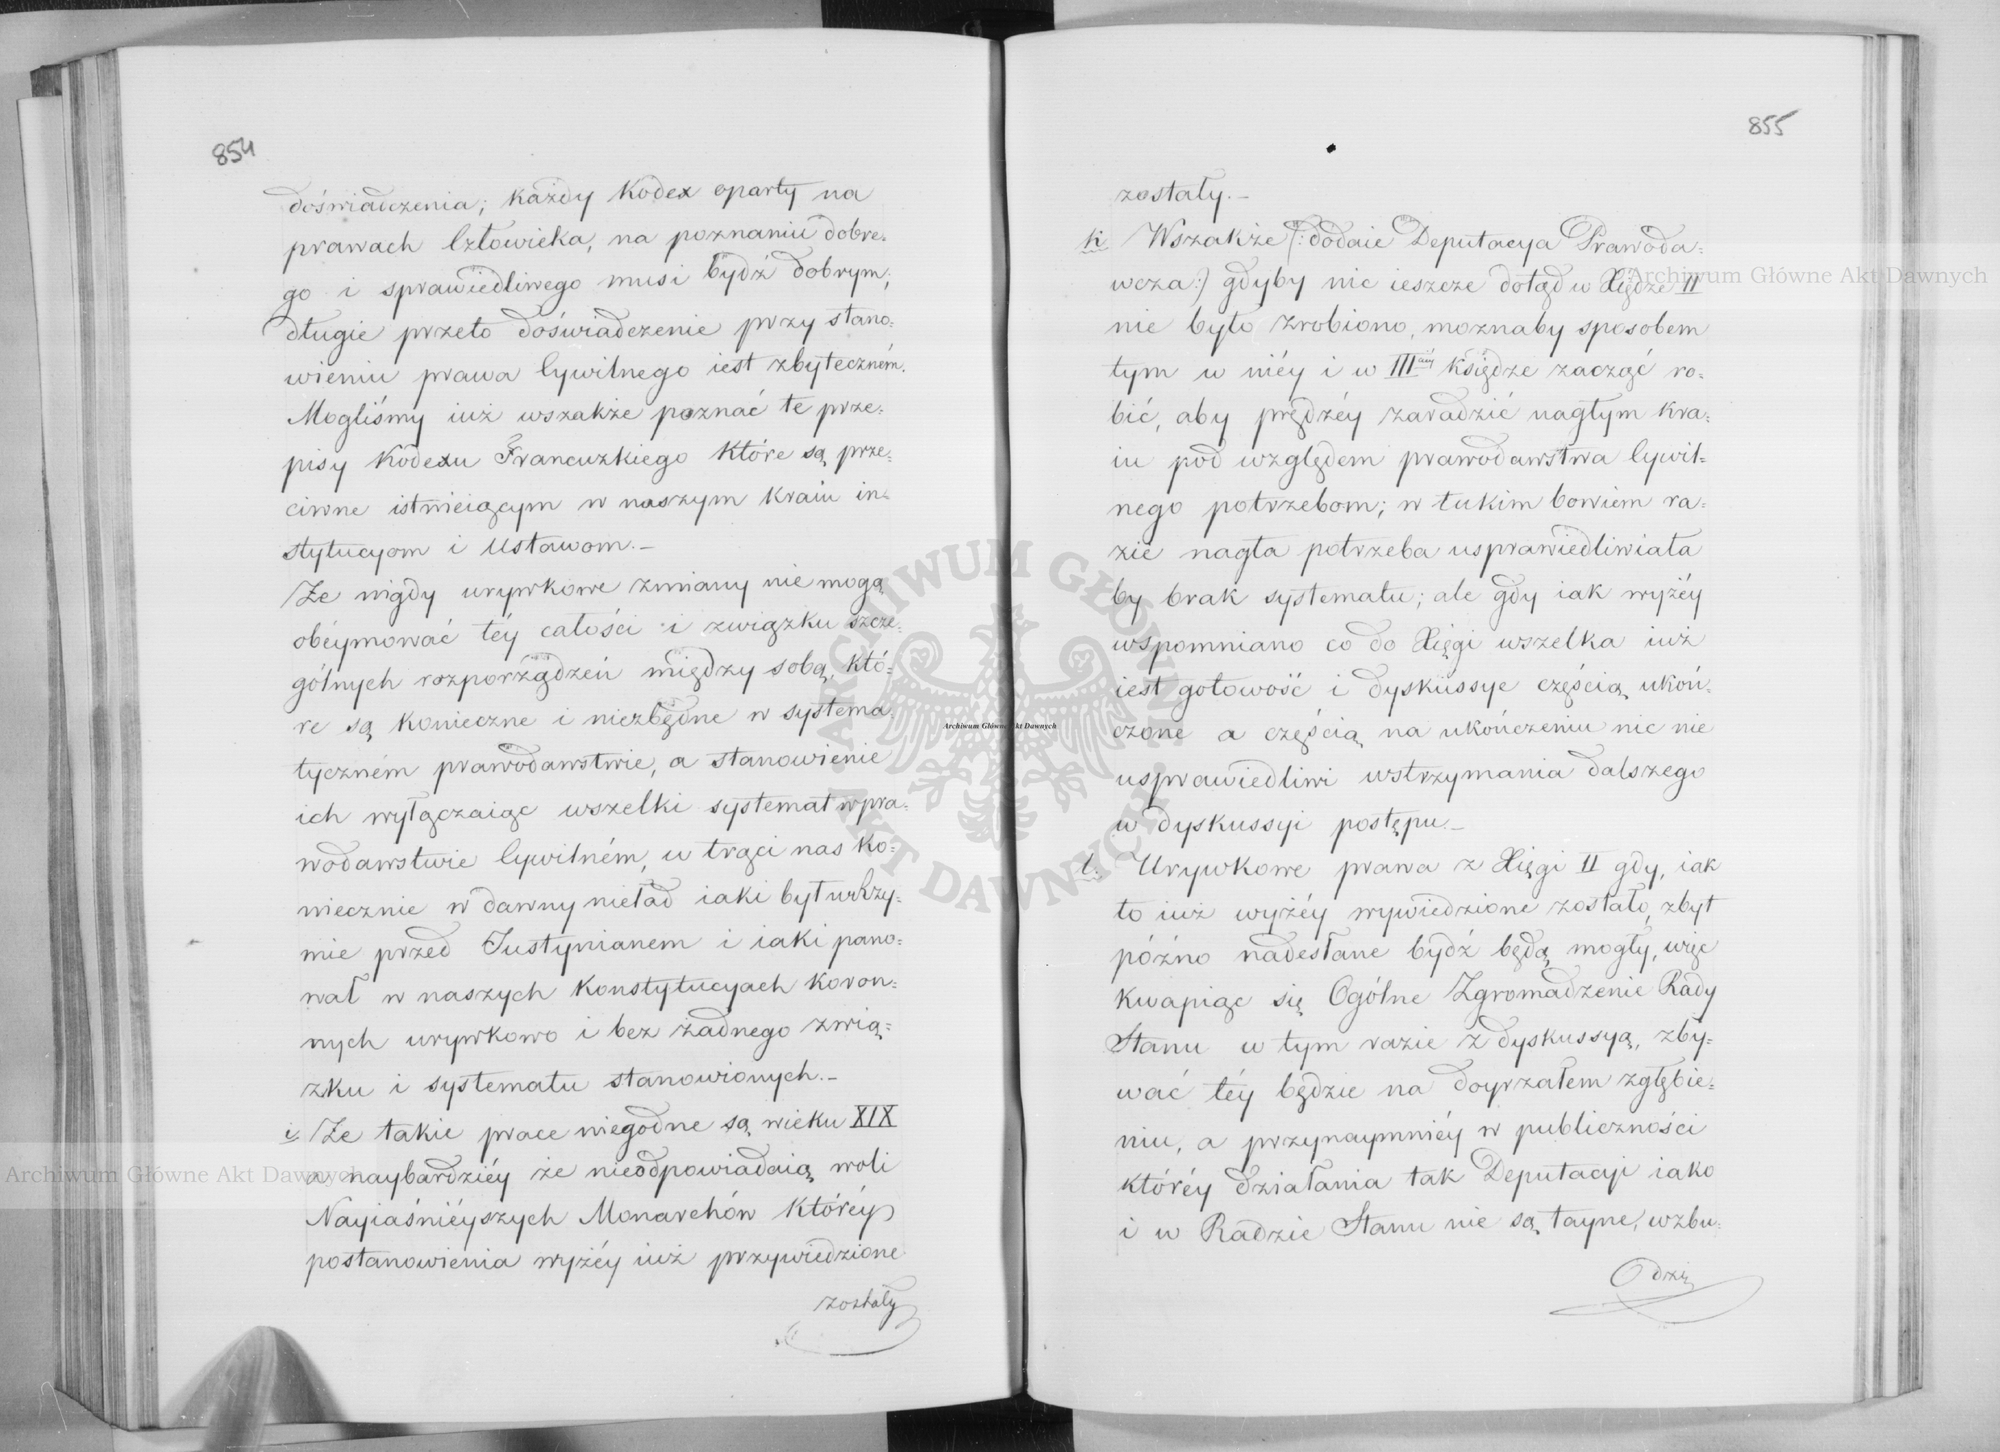 854
doświadczenia; każdy Kodex oparty na
prawach Człowieka, na poznaniu dobre-
go i sprawiedliwego musi bydź dobrym;
długie przeto doświadczenie przy stano-
wieniu prawa Cywilnego iest zbyteczném.
Mogliśmy iuż wszakże poznać te prze-
pisy Kodexu Francuzkiego które są prze-
ciwne istnieiącym w naszym kraiu in-
stytucyom i Ustawom.—
Że nigdy urywkowe zmiany nie mogą
obéymować téy całości i związku szcze-
gólnych rozporządzeń między sobą, któ-
re są konieczne i niezbędne w systema
tyczném prawodawstwie, a stanowienie
ich wyłączaiąc wszelki systemat w pra-
wodawstwie Cywilném, w trąci nas ko-
niecznie w dawny nieład iaki był w Rzy-
mie przed Justynianem i iaki pano-
wał w naszych Konstytucyach koron-
nych urywkowo i bez żadnego zwią-
zku i systematu stanowionych.—
i. Że takie prace niegodne są wieku XIX
a naybardziéy że nieodpowiadaią woli
Nayiaśniéyszych Monarchów któréy
postanowienia wyżéy iuż przywiedzione
zostały
855
zostały.—
k. Wszakże (: dodaie Deputacya Prawoda-
wcza :) gdyby nic ieszcze dotąd w Xiędze II
nie było zrobiono, moznaby sposobem
tym w niéy i w III księdze zacząć ro-
bić, aby prędzéy zaradzić nagłym kra-
iu pod względem prawodawstwa Cywil-
nego potrzebom; w takim bowiem ra-
zie nagła potrzeba usprawiedliwiała
by brak systematu; ale gdy iak wyżéy
wspomniano co do Xięgi wszelka iuż
iest gotowość i dyskussye częścią ukoń-
czone a częścią na ukończeniu nic nie
usprawiedliwi wstrzymania dalszego
w dyskussyi postępu.—
l. Urywkowe prawa z Xięgi II gdy, iak
to iuż wyżéy wywiedzione zostało, zbyt
późno nadesłane bydź będą mogły, więc
kwapiąc się Ogólne Zgromadzenie Rady
Stanu w tym razie z dyskussyą, zby-
wać téy będzie na doyrzałem zgłębie-
niu, a przynaymniéy w publiczności
któréy działania tak Deputacyi iako
i w Radzie Stanu nie są tayne, wzbu-
dzi
Archiwum Główne Akt Dawnych
Archiwum Główne Akt Dawnych
Archiwum Główne Akt Dawnych
ARCHIWUM GŁÓWNE AKT DAWNYCH